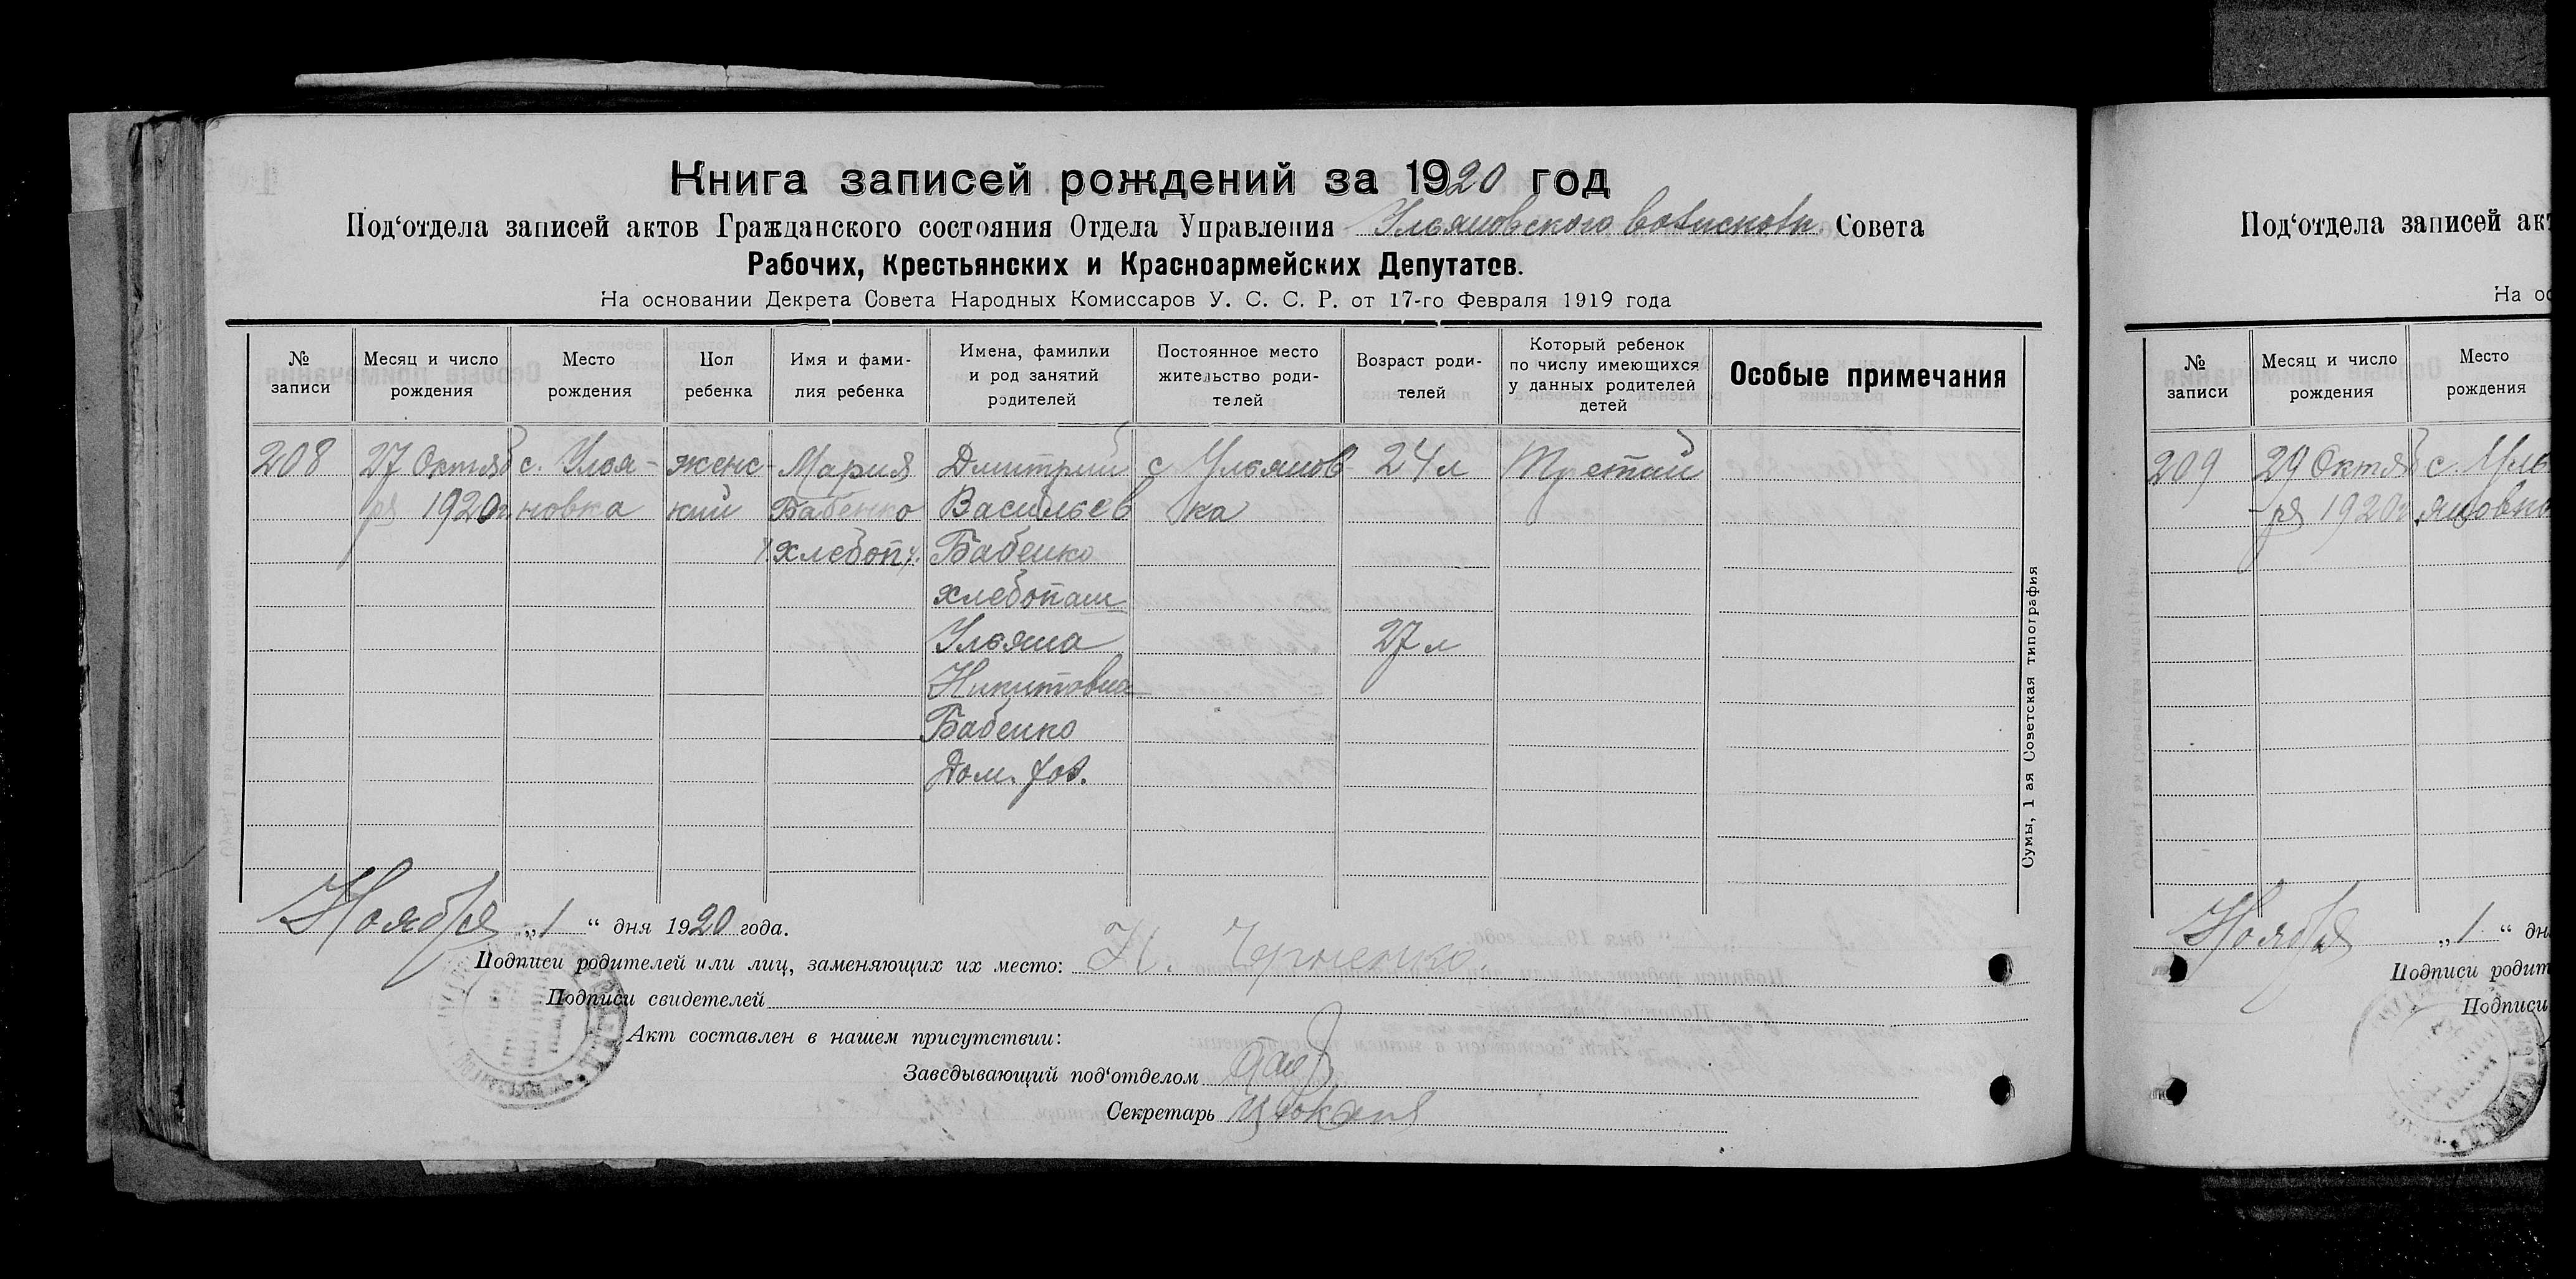 Книга записей рождений за 1920 год
Под‘отдела записей актов Гражданского состояния Отдела Управления Ульяновского волисполк. Совета
Рабочих, Крестьянских и Красноармейских Депутатов.
На основании Декрета Совета Народных Комиссаров У. С. С. Р. от 17-го Февраля 1919 года
№ записи
Месяц и число рождения
Место рождения
Пол ребенка
Имя и фами-
лия ребенка
Имена, фамилии
и род занятий
родителей
Постоянное место
жительство роди-
телей
Возраст роди-
телей
Который ребенок
по числу имеющихся
у данных родителей
детей
Особые примечания
208 27 Октяб с. Улья- женс Мария Дмитрий с Ульянов 24 л Третий
ря 1920г новка кий Бабенко Васильев ка
хлебоп. Бабенко
хлебопаш
Ульяна 27 л
Никитовна
Бабенко
Дом. хоз.
Сумы, 1 ая Советская типография
Ноября „1“ дня 1920 года.
Подписи родителей или лиц, заменяющих их место: Н. Черненко.
Подписи свидетелей
Акт составлен в нашем присутствии:
Заведывающий под‘отделом
Секретарь
Под‘отдела записей акт
На ос
№ записи
Месяц и число рождения
Место рождения
209 29 Октяб с. Уль
-ря 1920г. яновка
Ноября „1“ дн
Подписи родит
Подписи